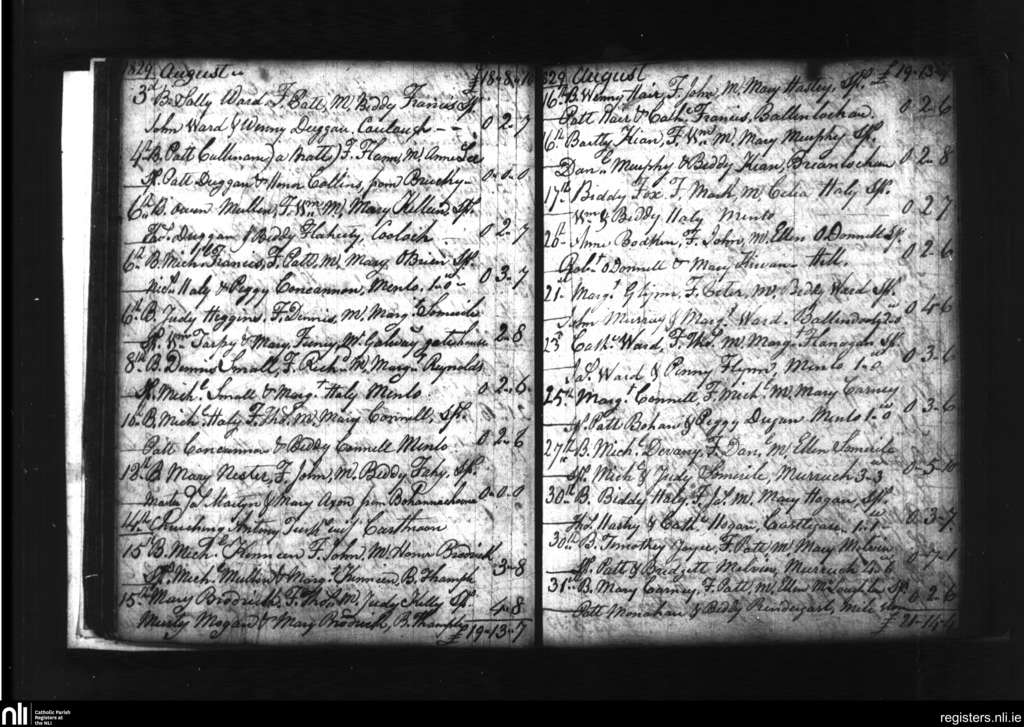 1829 August £18-8-10
3d B. Sally Ward F. Patt, M. Biddy Francis Sps.
John Ward & Winny Duggan, Coolough -- 0-2-7
4th B. Patt Cullinan (a Natls) F. Thom, M. Anne Lee
Sps. Patt Duggan & Honor Collins, from 0-0-0
6th B. Owen Mullen, F. Wm M. Mary Sps.
Thos. Duggan, & Biddy Flaherty, Coolach 0-2-7
6th B. Mich. Francis, F. Patt, M. Mary O'Brien Sps.
Nics. Haly & Peggy Concannon, Menlo, 1-0 0-3-7
6th B. Judy Higgins F. Dennis, M. Margt.
Sps. Wm Tarpy & Mary Finey, Mt. Galway gatehouse 2-8
8th B. Dennis Small, F. Richd. M. Margt. Reynolds
Sps. Michl. Small & Margt. Haly Menlo 0-2-6
10th B. Michl. Haly F. Thos. M. Mary Connell, Sps.
Patt Concannon & Biddy Connell Menlo 0-2-6
13th B. Mary Nester, F. John, M. Biddy Fahy. Sps.
Martyn & Mary from 0-0-0
14th Churching Antony wife
15th B. Michl. F. John, M. Honor Brodrick
Sps. Michl. Mullen & Margt. B. Thomph 3-8
15th Mary Brodrick, F. Thos. M. Judy Kelly Sps.
Murty Hogan & Mary Brodrick, B. Thomph 4-8
£19-13-7
1829 August £19-13-7
16th B. Winny Hair, F. John, M. Mary Sps.
Patt Hair & Cath. Francis, Ballinlochan 0-2-6
16th Bartly Kian, F. Wm M. Mary Murphy Sps.
Danl. Murphy & Biddy Kian, 0-2-8
17th Biddy Fox F. Mark, M. Celia Haly Sps.
Wm & Biddy Haly Menlo 0-2-7
Anne Bodkin, F. John, M. Ellen O'Donnell Sps.
Robt. O'Donnell & Mary Kirwan Hill 0-2-6
21 Margt. Glynn, F. Peter, M. Biddy Ward Sps.
John Murray & Margt. Ward 0-4-6
23d Cath. Ward, F. Thos. M. Margt. Flanagan Sps.
Jas. Ward & Penny Flynn, Menlo 1-0 0-3-6
25th Margt. Connell, F. Michl. M. Mary Carney
Sps. Patt Bohan & Peggy Dugan Menlo 1-0 0-3-6
27th B. Michl. Devany, F. Dan, M. Ellen
Sps. Michl. & Judy Murruch 3-3 0-5-10
30th B. Biddy Haly, F. Jas. M. Mary Hogan Sps.
Thos. & Cath. Hogan, Casttlegar 1-1 0-3-7
30th B. Timothey Joyce, F. Patt, M. Mary Melvin
Sps. Patt & Bridgett Melvin, Murruch 4-6 0-7-1
31st B. Mary Carney, F. Patt, M. Ellen McLoughlin Sps.
Patt Monahan & Biddy Prindergast, 0-2-6
£21-14-4
nli
Catholic Parish
Registers at
the NLI
registers.nli.ie